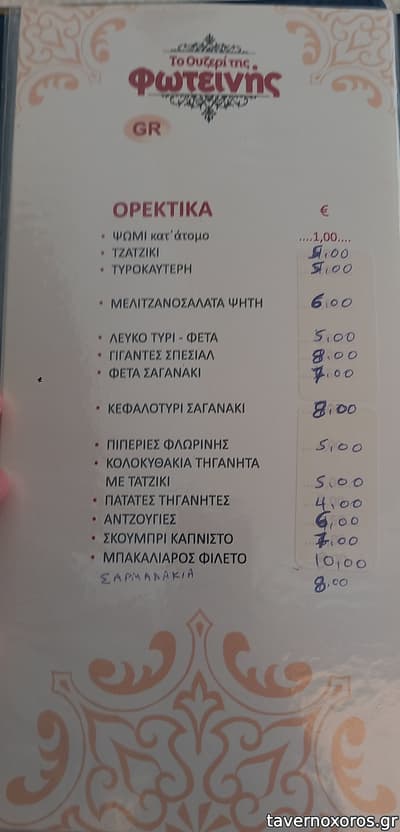 Το Ουζερί της
Φωτεινής
GR
ΟΡΕΚΤΙΚΑ €
• ΨΩΜΙ κατ΄άτομο ....1,00....
• ΤΖΑΤΖΙΚΙ ,00
• ΤΥΡΟΚΑΥΤΕΡΗ ,00
• ΜΕΛΙΤΖΑΝΟΣΑΛΑΤΑ ΨΗΤΗ 6,00
• ΛΕΥΚΟ ΤΥΡΙ - ΦΕΤΑ 5,00
• ΓΙΓΑΝΤΕΣ ΣΠΕΣΙΑΛ 8,00
• ΦΕΤΑ ΣΑΓΑΝΑΚΙ 7,00
• ΚΕΦΑΛΟΤΥΡΙ ΣΑΓΑΝΑΚΙ 8,00
• ΠΙΠΕΡΙΕΣ ΦΛΩΡΙΝΗΣ 5,00
• ΚΟΛΟΚΥΘΑΚΙΑ ΤΗΓΑΝΗΤΑ
ΜΕ ΤΑΤΖΙΚΙ 5,00
• ΠΑΤΑΤΕΣ ΤΗΓΑΝΗΤΕΣ 4,00
• ΑΝΤΖΟΥΓΙΕΣ 6,00
• ΣΚΟΥΜΠΡΙ ΚΑΠΝΙΣΤΟ 7,00
• ΜΠΑΚΑΛΙΑΡΟΣ ΦΙΛΕΤΟ 10,00
ΣΑΡΜΑΔΑΚΙΑ 8,00
tavernoxoros.gr